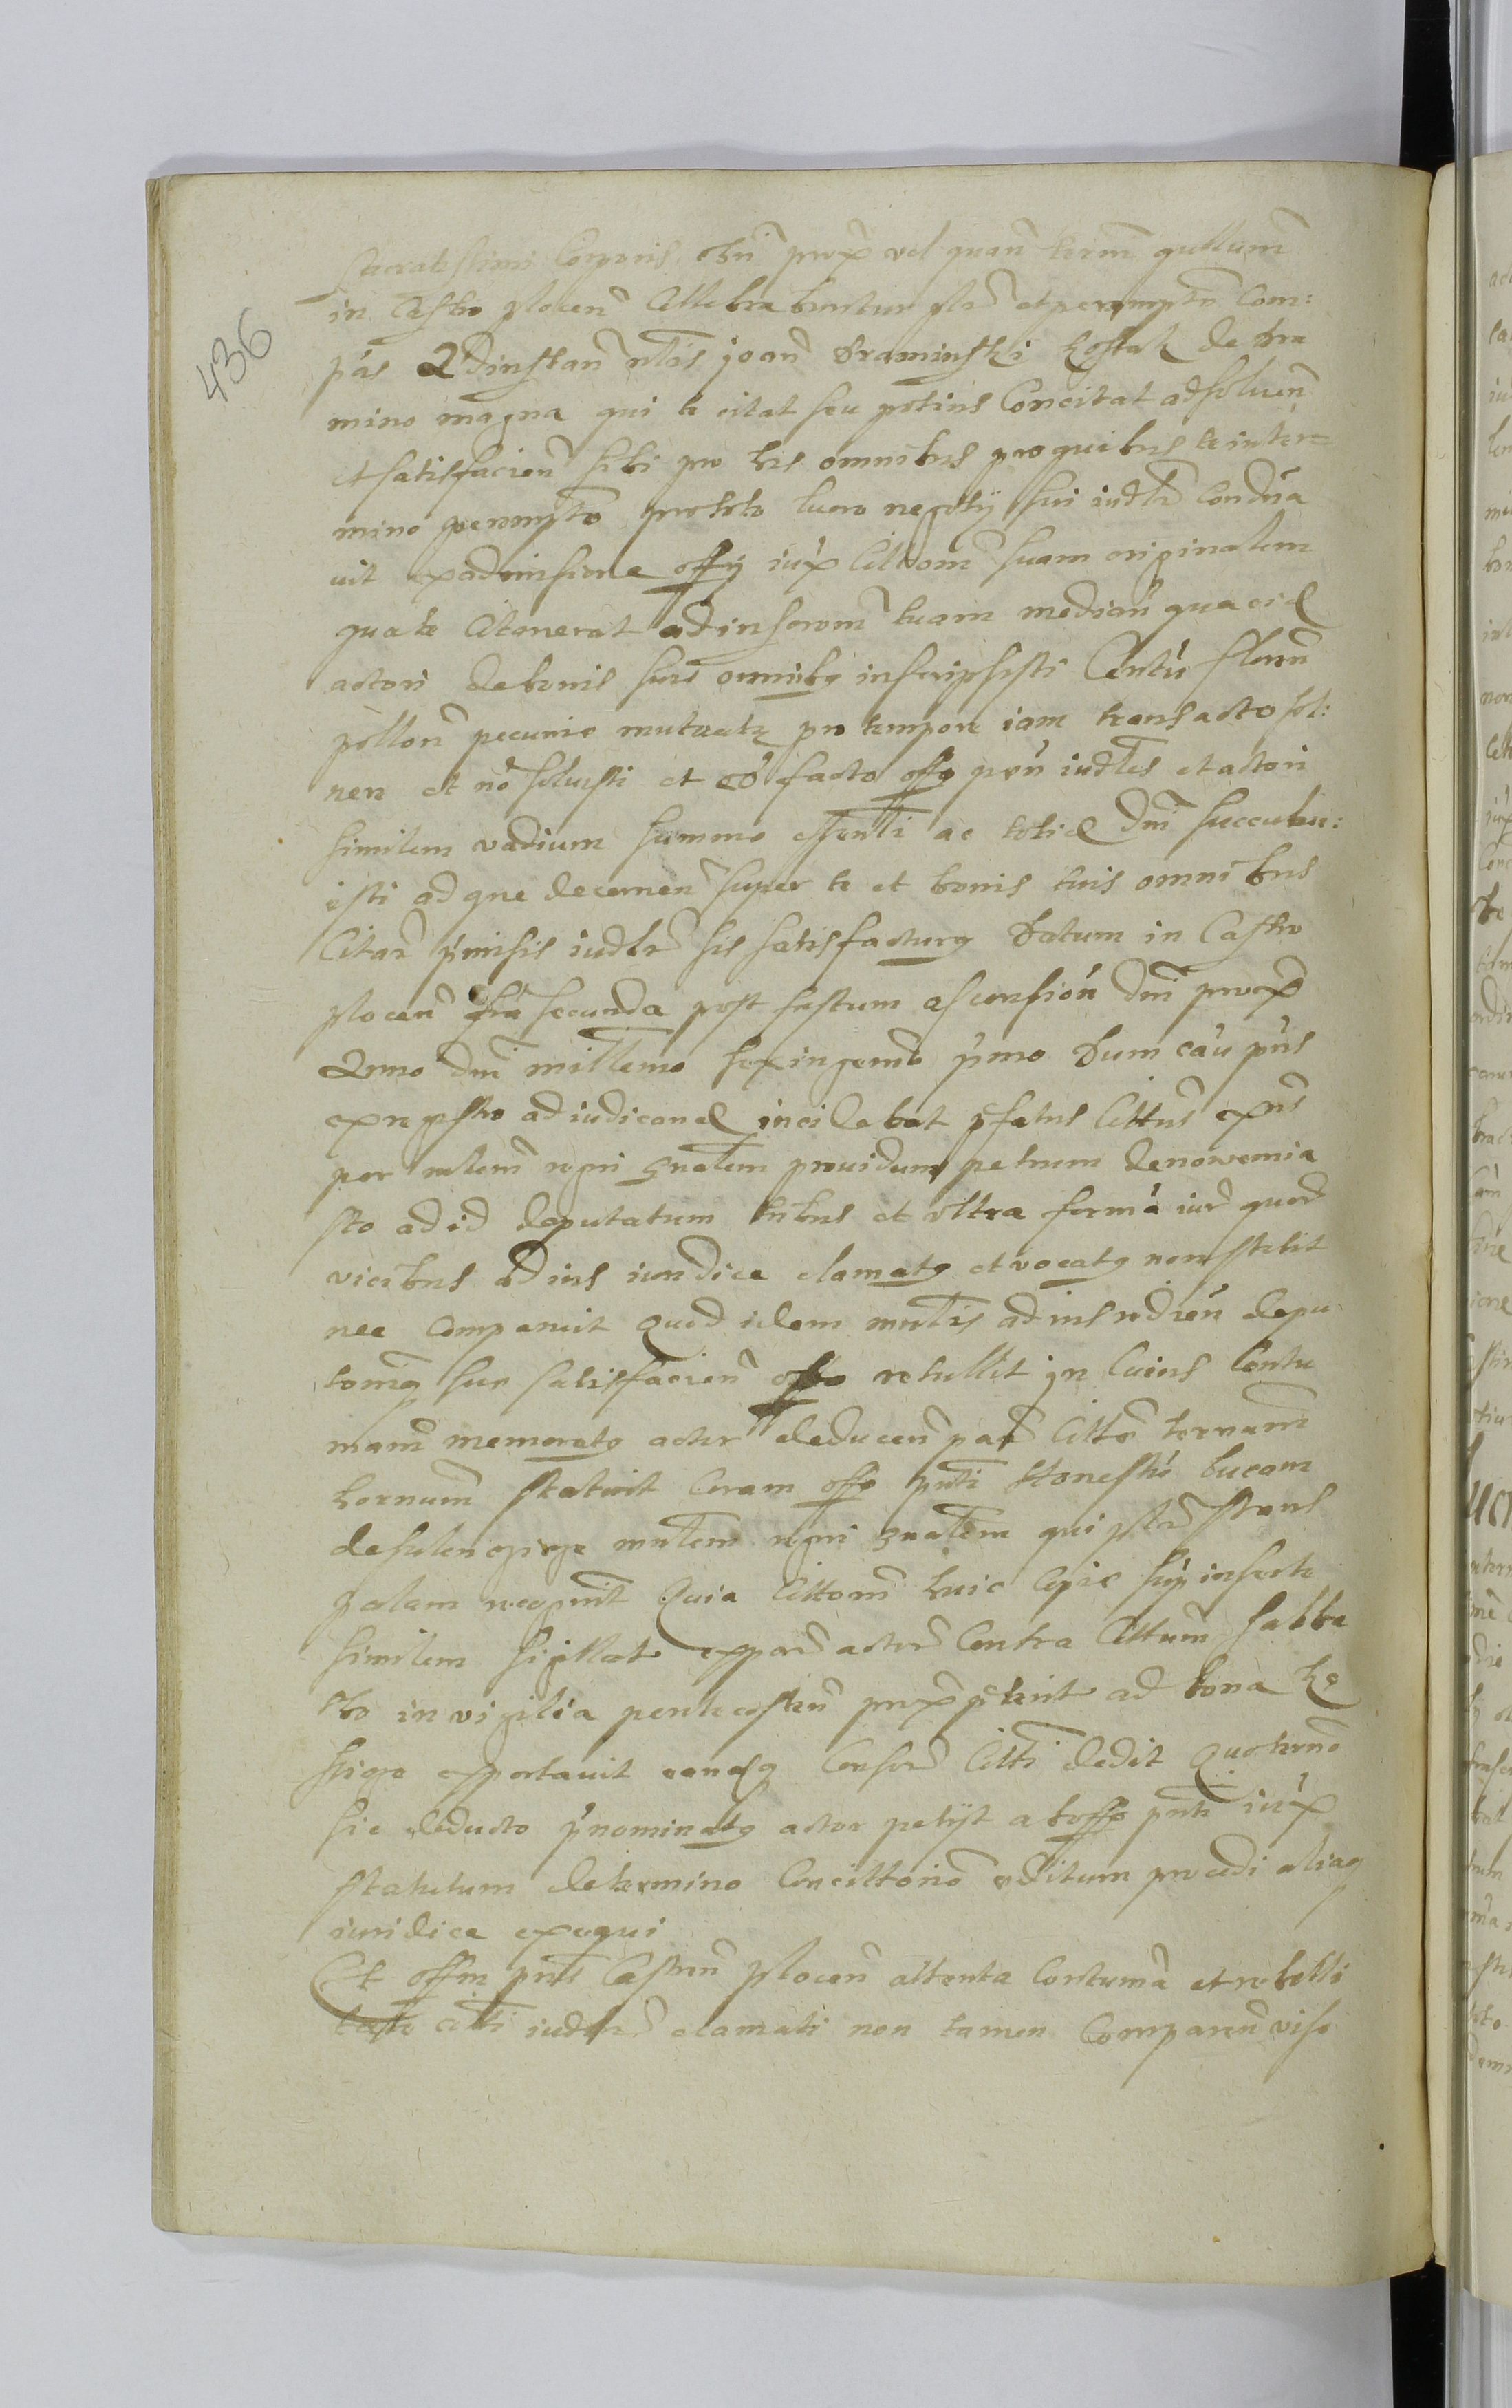 436
Sacratissimi Corporis Chri prox vel quan term quellum
in Castro plocen Cellebrabuntur plr et peremptor Com:
pās Ad instan nblis joan draminski kostak de dra
mino magna qui te citat seu potius Concitat ad soluen
et satisfacien sibi pro his omnibus pro quibus te in ter=
mino perempto pro toto lucro negotÿ sui iudlr condēna
uit ex admissione offÿ iux Cittonem suam originalem
qua te Citauerat ad inscrom tuam median qua eid
actori de bonis suis omnibq inscripsisti Centū floren
pollon pecunie mutuate pro tempore iam transacto sol:
uen et nō soluisti et eō facto offo pren iudles et actori
similem vadium summo essenti ac totid dni succubu:
isti ad que decernen super te et bonis tuis omnibus
Citar pmissis iudlr sis satisfacturq Datum in Castro
plocen fria secunda post festum ascension dni prox
Anno dni millemo sexingenmo pmo Dum cāu pns
ex regstro ad iudicand incidebat pfatus Cittus exns
per mlem regni gnalem prouidum petrum de nowemia
sto ad id deputatum tribus et vltra formā iur quord
vicibus ad ius iuridice clamatq et vocatq non stetit
nec Comparuit Quod idem mnlis ad ius reddien depu
tomq sue satisfacien offo retullit jn Cuius Contu
mam memoratq actor deducen par Citto ternam
ternum statuit Coram offo pnti Honestū lucam
de mnlem regni gnalem qui plr stans
palam recognit Quia Cittom huic Copie sup inserte
similem sigillat ex par actor Contra Cittum sabba
tho in vigilia pentecosten prox pterit ad bona
exportauit eandq Consor Citti dedit Quo termo
sic deducto pnominatq actor petÿt ab offo pnti iux
statutum de termino Concittorio editum procedi aliaq
iuridice exequi
Et offm pns Castren plocen attenta Contuma et rebelli
tate citti iudlr clamati non tamen Comparen viso